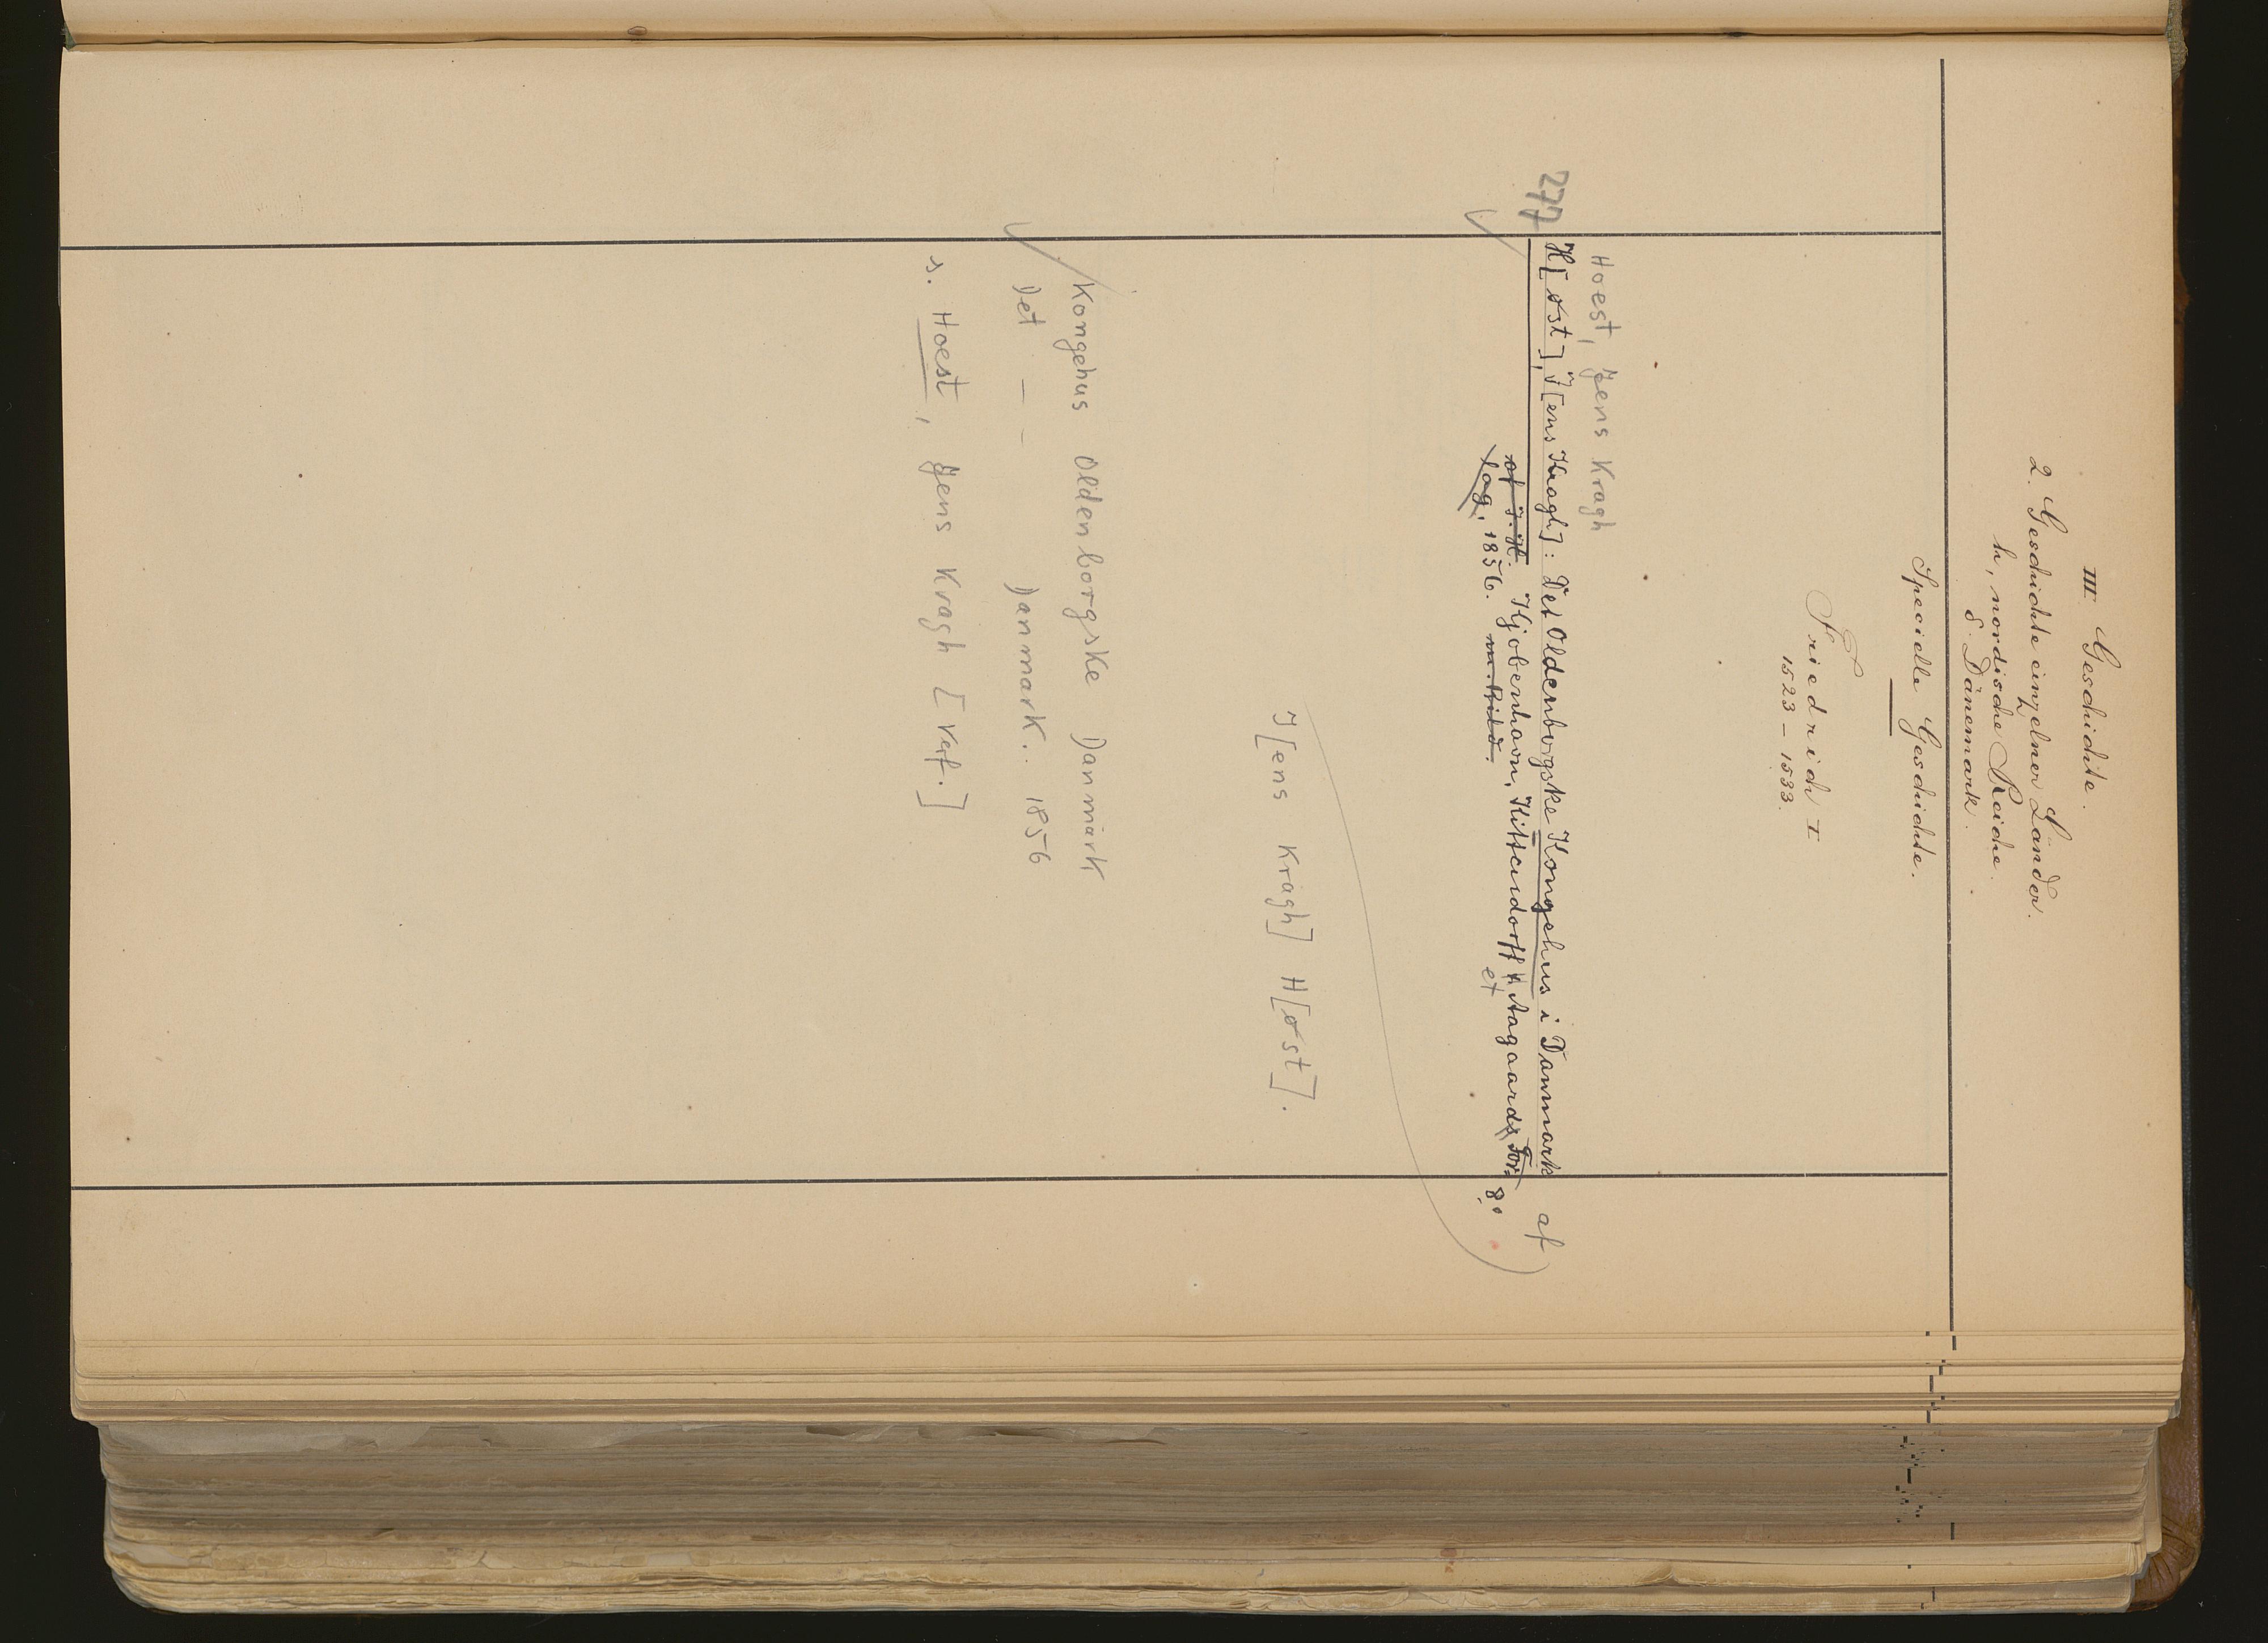 III. Geschichte.
2. Geschichte einzelner Länder.
h, nordische Reiche.
δ. Dänemark.
Specielle Geschichte.
Friedrich I
1523 – 1533.
Hoest, Jens Kragh
277 H[øst], J[ens Kragh]: Det Oldenborgske Kongehus i Danmark af
af J. H. Kjøbenhavn, Kittendorff & Aagaards For- 8°
et
lag, 1856. m. Bild.
J[ens Kragh] H[øst].
Kongehus Oldenborgske Danmark
Det — — Danmark. 1856
s. Hoest, Jens Kragh [Verf.]